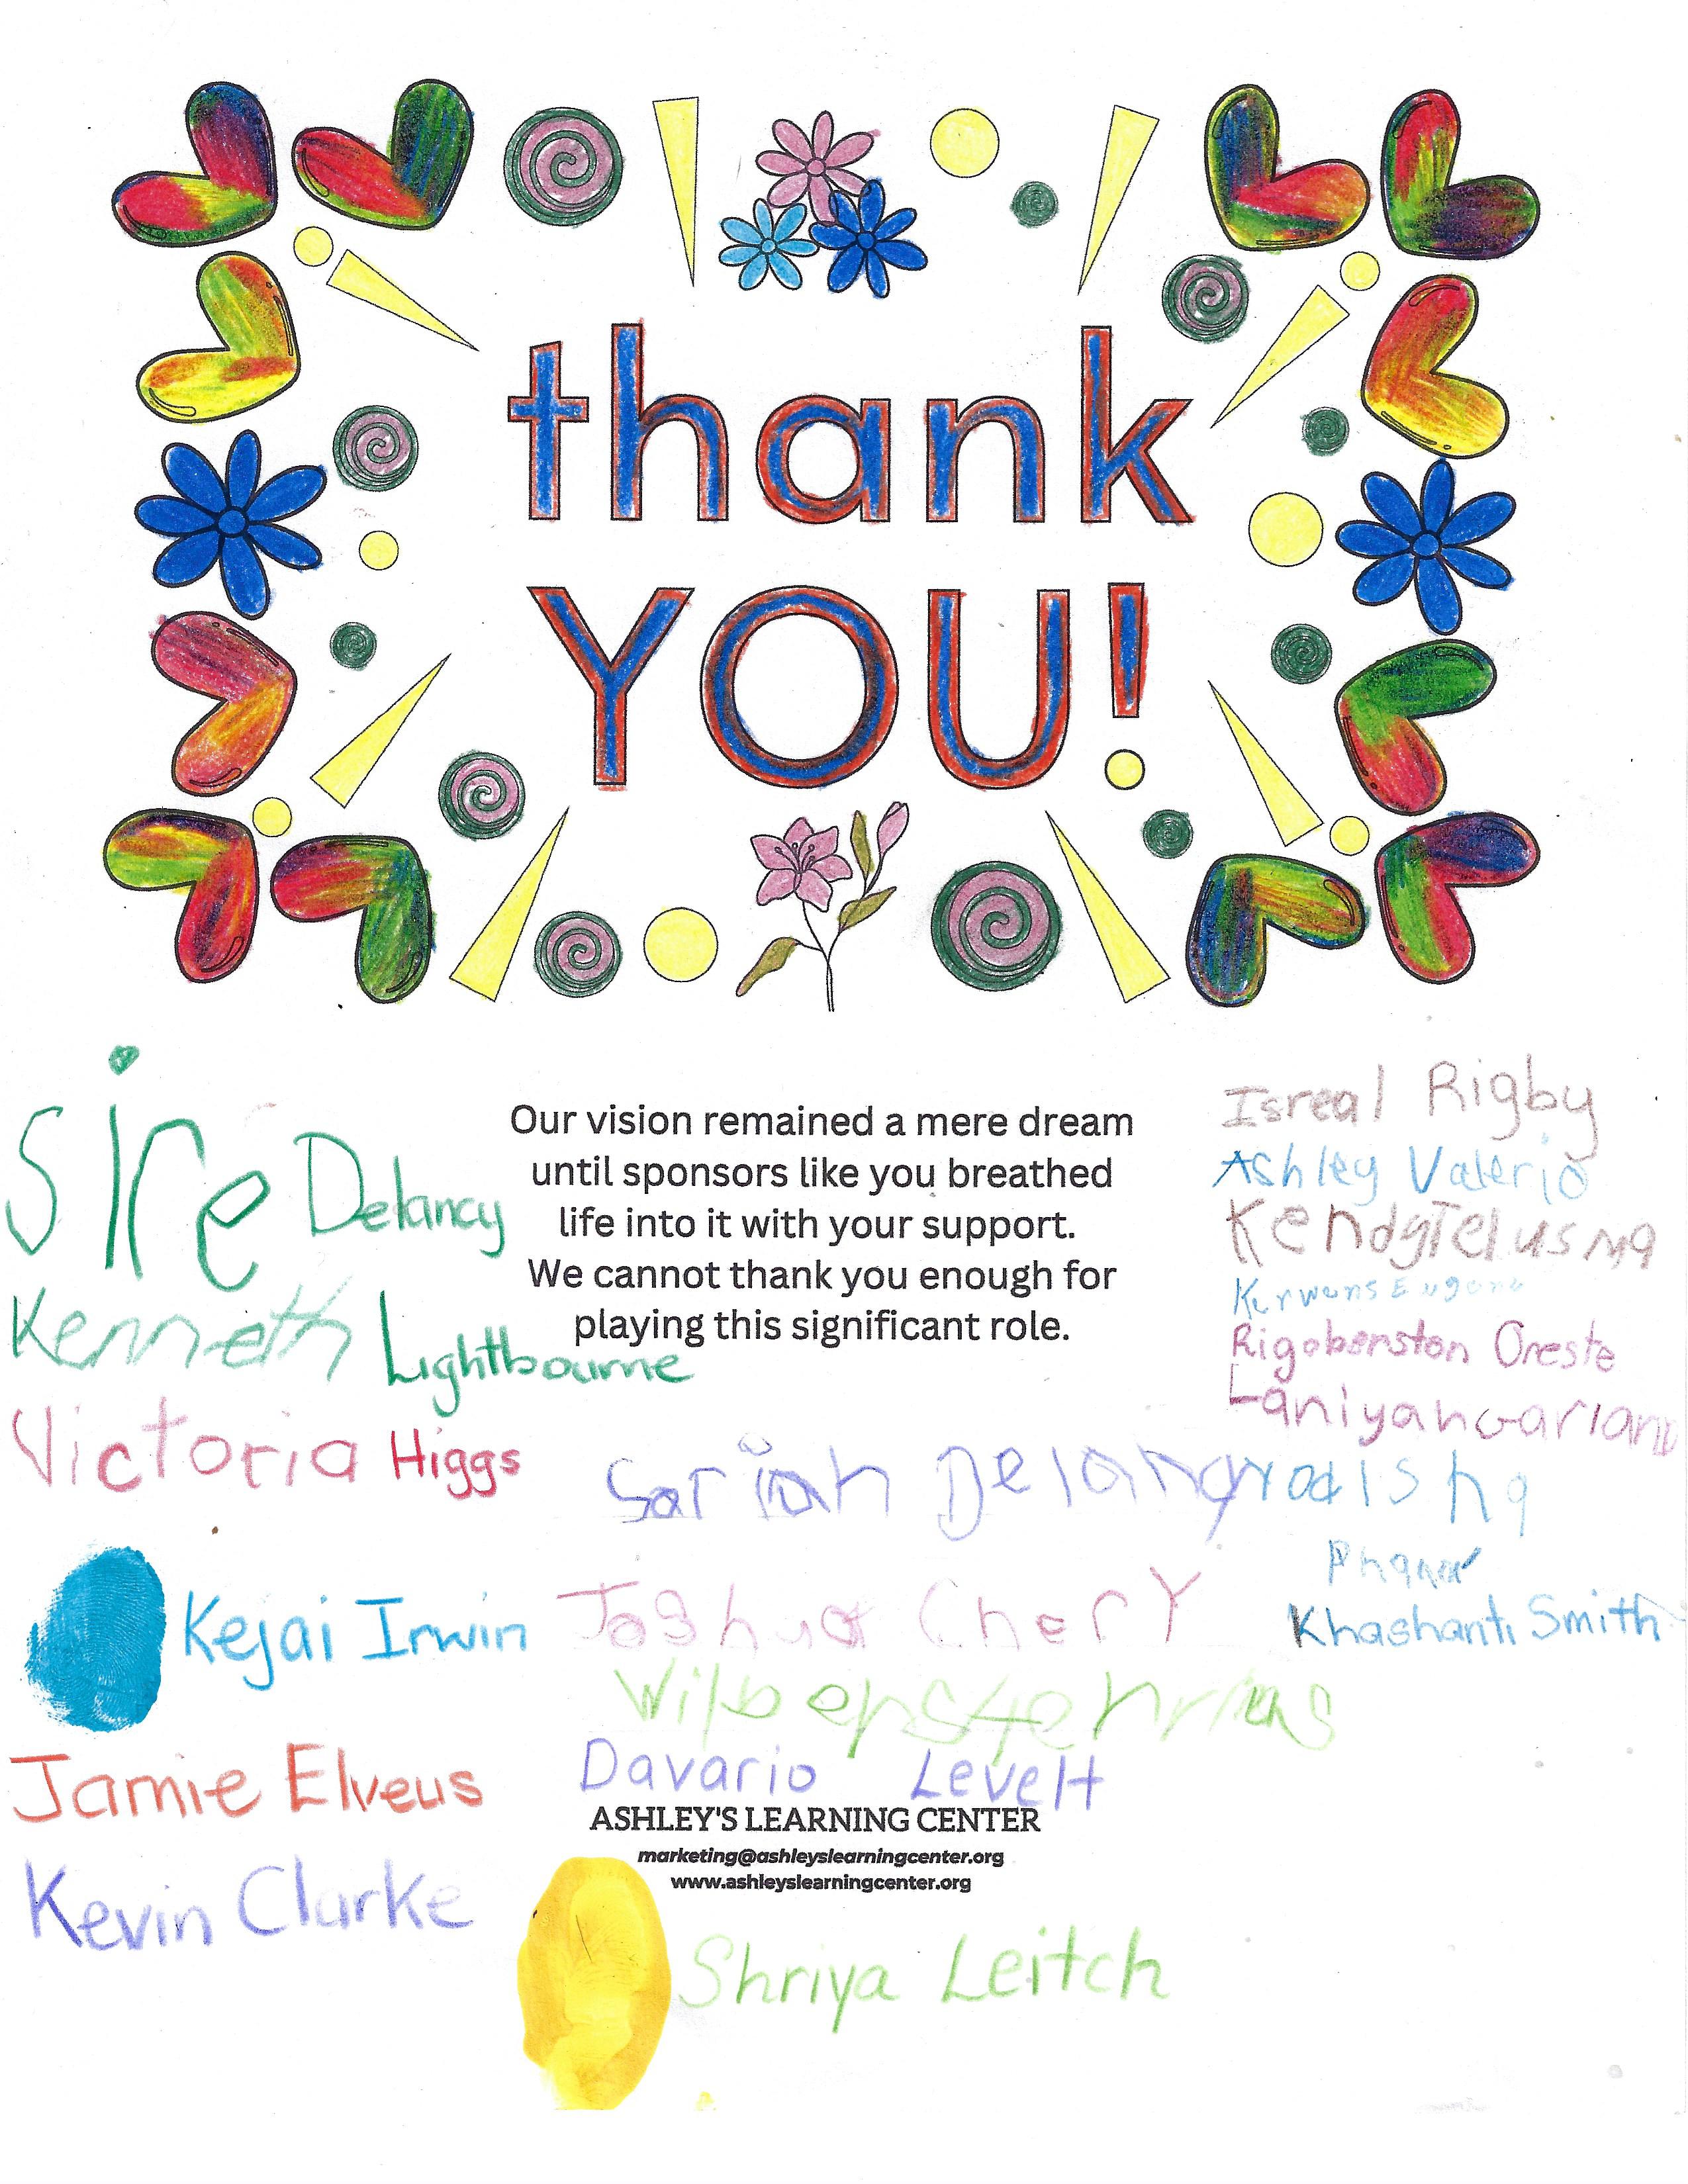 thank
YOU!
Our vision remained a mere dream
until sponsors like you breathed
life into it with your support.
We cannot thank you enough for
playing this significant role.
Sire Delancy
Kenneth Lightbourne
Victoria Higgs
Kejai Irwin
Jamie Elveus
Kevin Clarke
Isreal Rigby
Ashley Valerio
Kendy Telusma
Kerwens
Rigobenston Oreste
Laniyah
Sariah Delancy
Joshua Chery
Khashanti Smith
Davario Levelt
ASHLEY'S LEARNING CENTER
marketing@ashleyslearningcenter.org
www.ashleyslearningcenter.org
Shriya Leitch